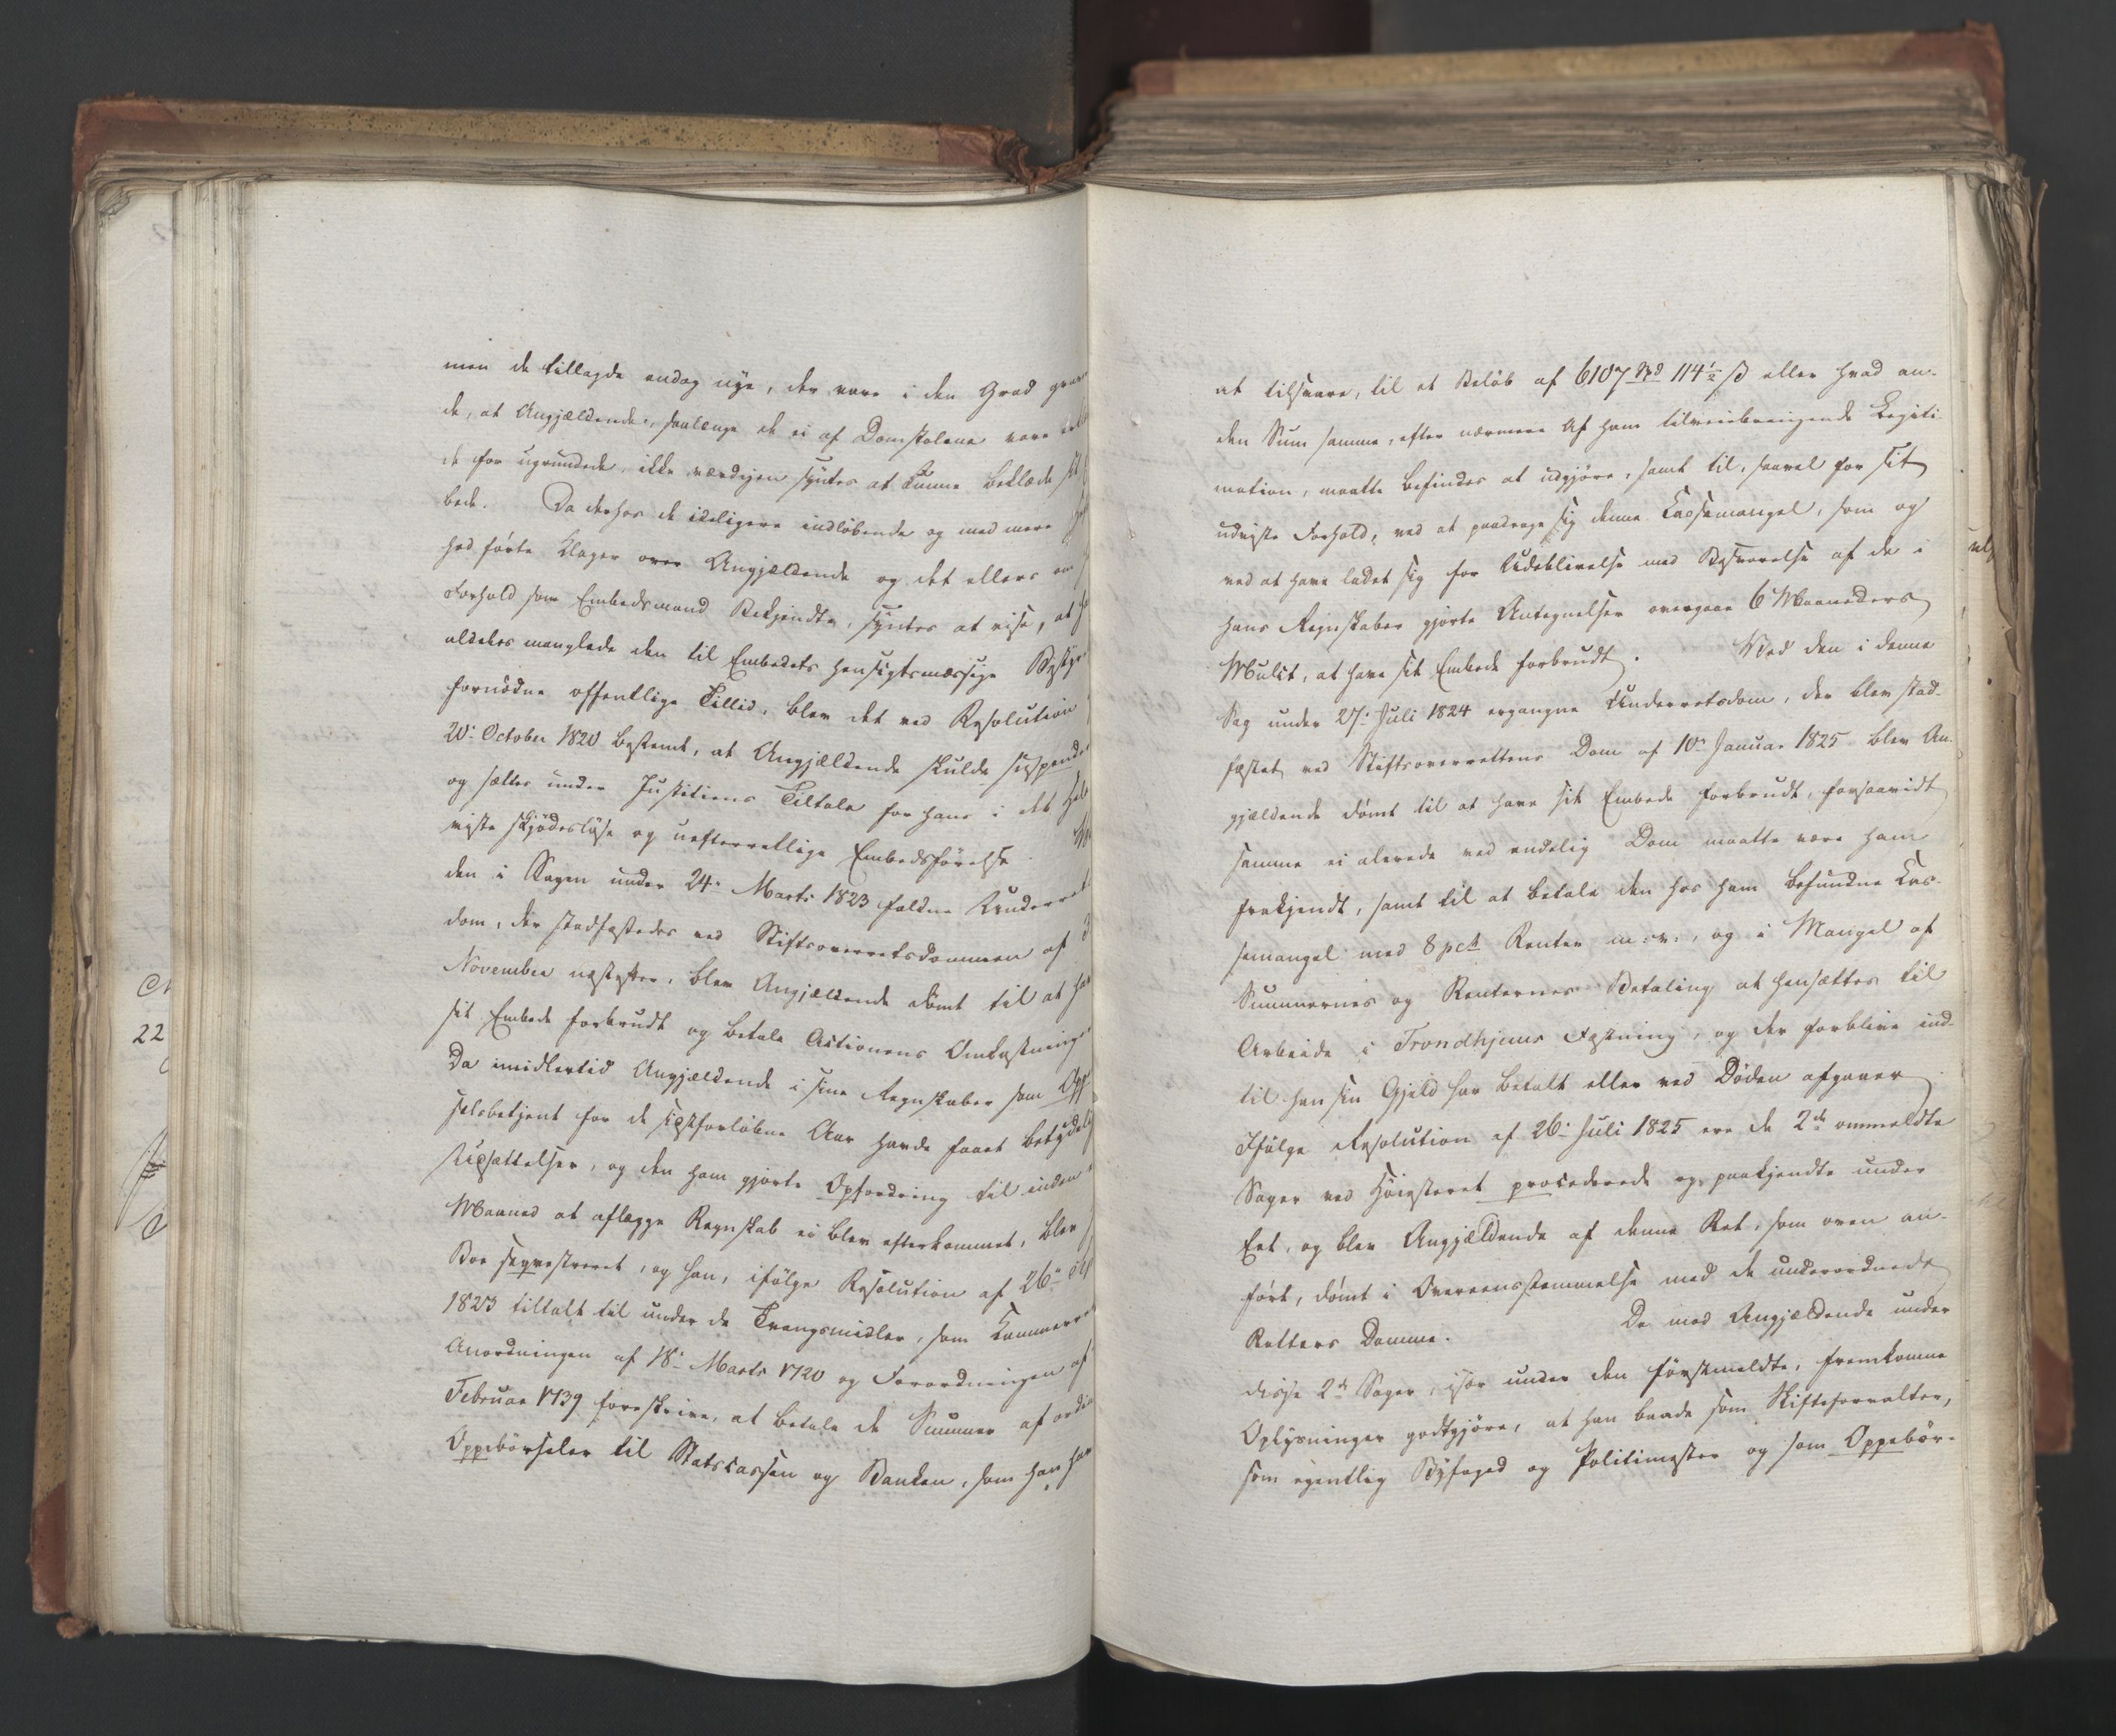 men de tillagde endog nye, der vare i den Grad grave
de, at Angjældende, saalænge de ei af Domstolene vare
de for ugrundede, ikke værdigen syntes at kunne beklæde sit
bede. Da derhos de ideligere indløbende og med mere
hed førte Klager over Angjældende og det ellers om
Forhold som Embedsmand Bekjendte, syntes at vise, at h
aldeles manglede den til Embedets hensigtsmæssige Besty
fornødne offentlige Tillid, blev det ved Resolution
20de October 1820 bestemt, at Angjældende skulde suspende
og sættes under Justitiens Tiltale for hans i det Hele
viste skjødesløse og uefterrettelige Embedsførelse.
den i Sagen under 24de Marts 1823 faldne Underret
dom, der stadfæstedes ved Stiftsoverretsdommen af 3
November næstefter, blev Angjældende dømt til at ha
sit Embede forbrudt og betale Actionens Omkostning
Da imidlertid Angjældende i sine Regnskaber som Opp
selsbetjent for de sidstforløbne Aar havde faaet betydelig
Udsættelser, og den ham gjorte Opfordring til inden
Maaned at aflægge Regnskab ei blev efterkommet, blev
Boe seqvestreret, og han, ifølge Resolution af 26de
1823 tiltalt til under de Tvangsmidler, som Kammerre
Anordningen af 18de Marts 1720 og Forordningen af
Februar 1739 foreskrive, at betale de Summer af ordi
Oppebørseler til Statscassen og Banken, som han ha
22
at tilsvare, til et Beløb af 6107 Spd 114½ ß eller hvad an-
den Sum samme, efter nærmere af ham tilveiebringende Legiti-
mation, maatte befindes at udgjøre, samt til, saavel for sit
udviste Forhold, ved at paadrage sig denne Cassemangel, som og
ved at have ladet sig for Udeblivelse med Besvarelse af de i
hans Regnskaber gjorte Antegnelser overgaae 6 Maaneders
Mulct, at have sit Embede forbrudt. Ved den i denne
Sag under 27de Juli 1824 ergangne Underretsdom, der blev stad-
fæstet ved Stiftsoverrettens Dom af 10de Januar 1825 blev An-
gjældende dømt til at have sit Embede forbrudt, forsaavidt
samme ei alerede ved endelig Dom maatte være ham
frakjendt, samt til at betale den hos ham befundne Cas-
semangel med 8 pct Renter m: v:, og i Mangel af
Summernes og Renternes Betaling at hensættes til
Arbeide i Trondhjems Fæstning, og der forblive ind-
til han sin Gjeld har betalt eller ved Døden afgaaer
Ifølge Resolution af 26de Juli 1825 ere de 2de ommeldte
Sager ved Høiesteret procederede og paakjendte under
Eet, og blev Angjældende af denne Ret, som oven an-
ført, dømt i Overeensstemmelse med de underordnede
Retters Domme. De mod Angjældende under
disse 2de Sager, især under den førstmeldte, fremkomne
Oplysninger godtgjøre, at han baade som Skifteforvalter,
som egentlig Byfoged og Politimester og som Oppebør-